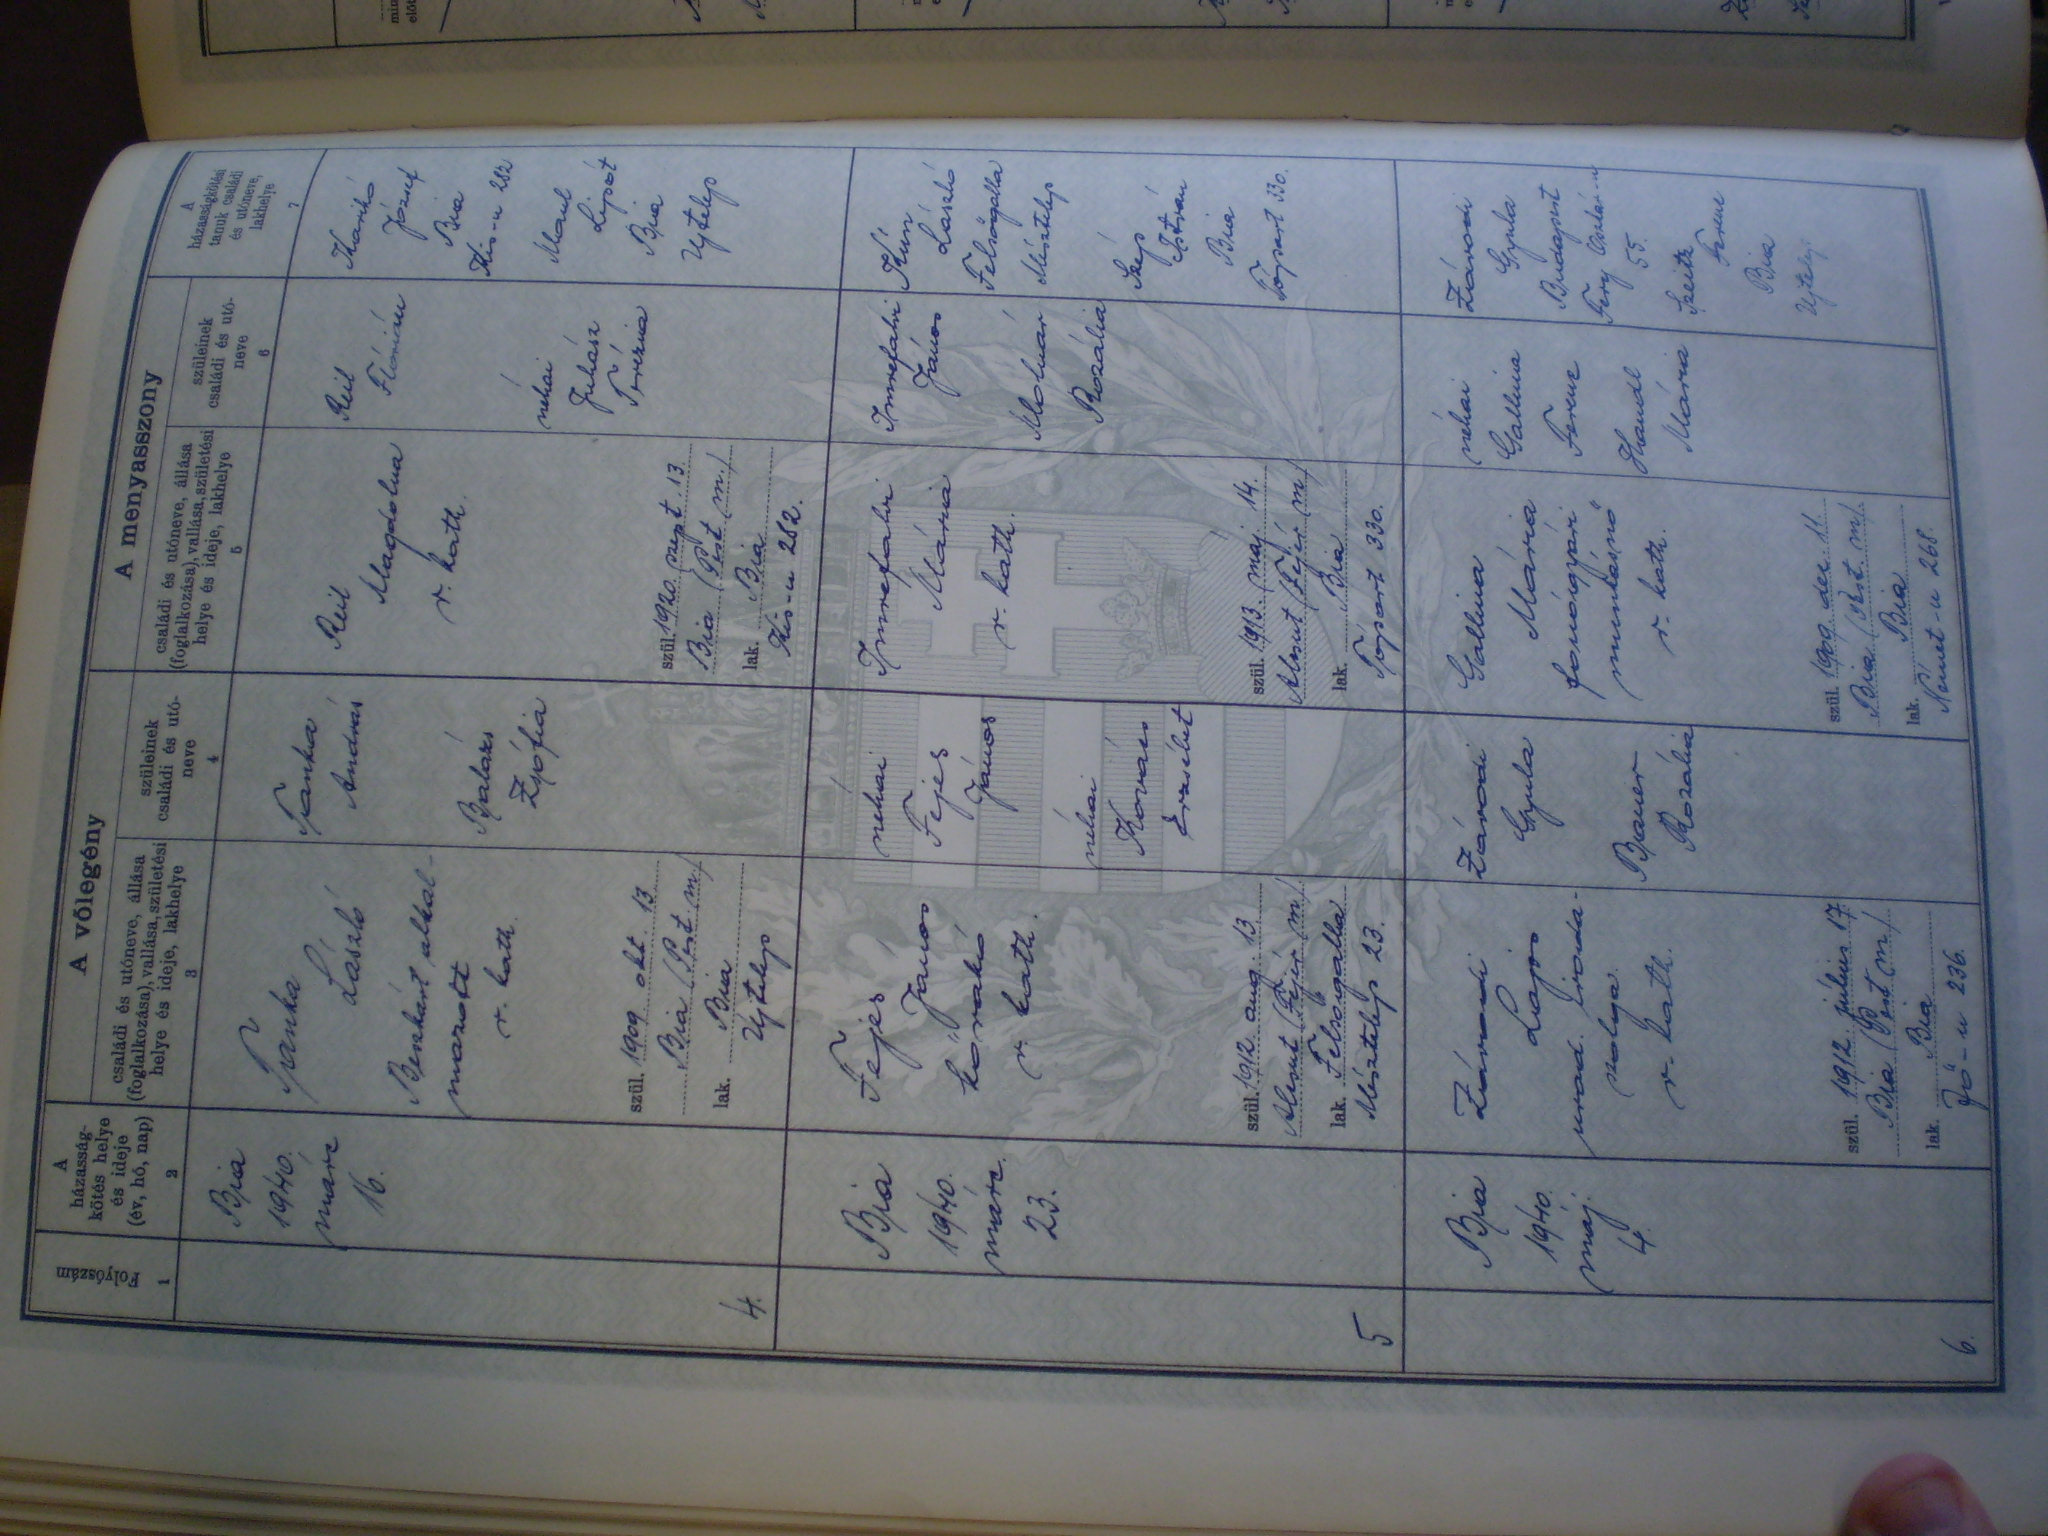 A
házasság-
kötés helye
és ideje
(év, hó, nap)
2
Folyószám
1
A vőlegény
családi és utóneve, állása
(foglalkozása), vallása, születési
helye és ideje, lakhelye
3
szüleinek
családi és utó-
neve
4
A menyasszony
családi és utóneve, állása
(foglalkozása), vallása, születési
helye és ideje, lakhelye
5
szüleinek
családi és utó-
neve
6
A
házasságkötési
tanuk családi
és utóneve,
lakhelye
7
4.
Bia
1940.
márc
16.
László
alkal-
mazott
r. kath.
szül. 1909 okt. 13.
Bia (Pest. m.)
lak. Bia
Ujtelep
András
Balázs
Zsófia
Reil
Magdolna
r. kath.
szül. 1920. szept. 13.
Bia (Pest. m.)
lak. Bia
Kis-u 282.
Reil
Flórián
néhai
Juhász
Terézia
József
Bia
Kis-u 282
Lipót
Bia
Ujtelep
5
Bia
1940.
márc.
23.
Fejes
János
kőrakó
r. kath.
szül. 1912. aug. 13.
Alcsut (Fejér m.)
lak. Felsőgalla
Mésztelep 23.
néhai
Fejes
János
néhai
Kovács
Erzsébet
Imrefalvi
Mária
r. kath.
szül. 1913. máj. 14.
Alcsut (Fejér m.)
lak. Bia
Tópart 330.
Imrefalvi
János
Molnár
Rozália
Kún
László
Felsőgalla
Mésztelep
Szép
István
Bia
Tópart 330.
6.
Bia
1940.
máj.
4.
Zámodi
Lajos
urad. iroda-
szolga
r. kath.
szül. 1912. julius 17.
Bia (Pest m.)
lak. Bia
Fő-u 236.
Gyula
Bauer
Rozália
Gallina
Mária
fonógyári
munkásnő
r. kath.
szül. 1909. dec 11.
Bia (Pest. m.)
lak. Bia
Német-u 268.
néhai
Gallina
Ferenc
Handl
Mária
Gyula
Budapest
55.
Szeitz
Ferenc
Bia
Ujtelep